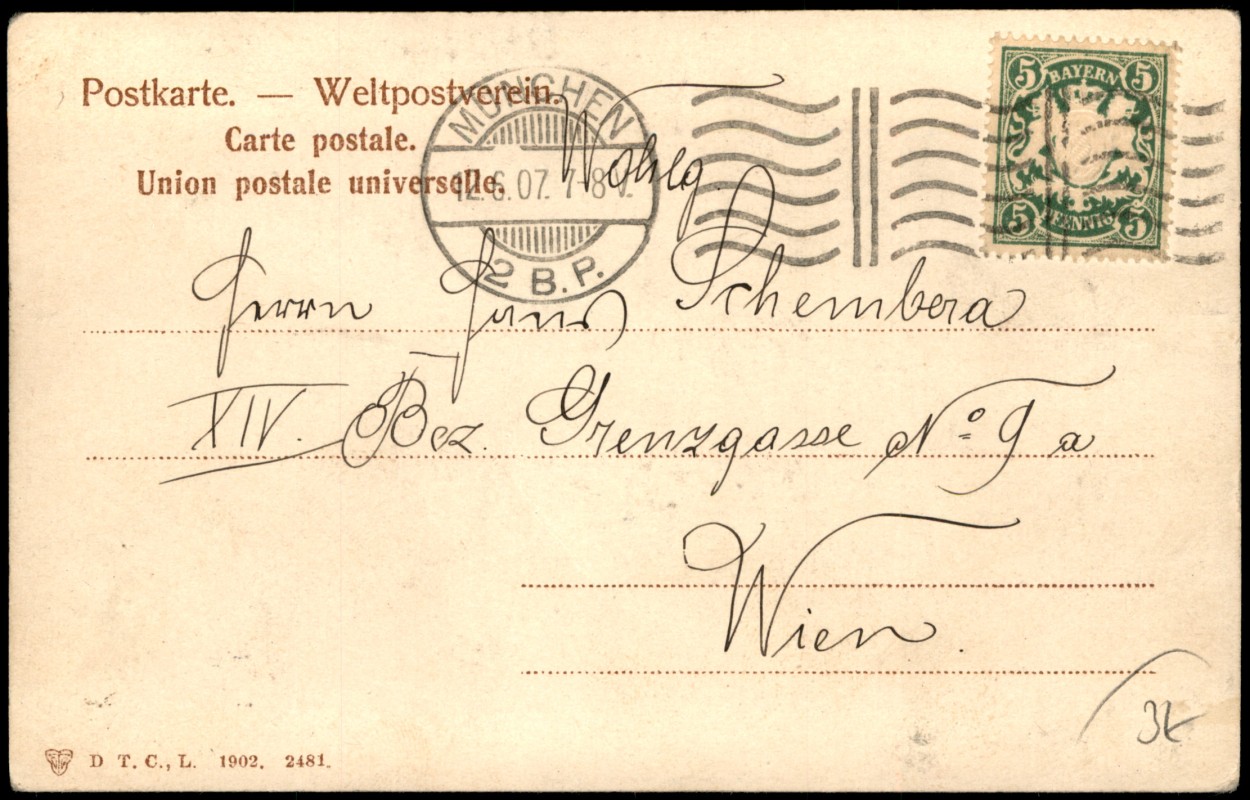 Postkarte. — Weltpostverein.
Carte postale.
Union postale universelle.
MÜNCHEN
12.6.07. 7-8 V.
2 B.P.
5 BAYERN 5
5 PFENNIG 5
Wohlg.
Herrn Hans Schembera
XIV. Bez. Grenzgasse No 9 a
Wien.
D T. C., L. 1902. 2481.